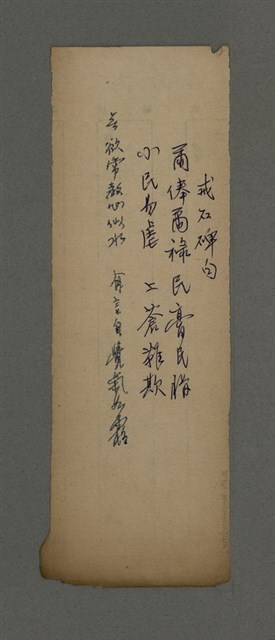 戒石碑句
爾俸爾祿 民膏民脂
小民易虐 上蒼難欺
無欲常教心似水 有言自覺氣如霜